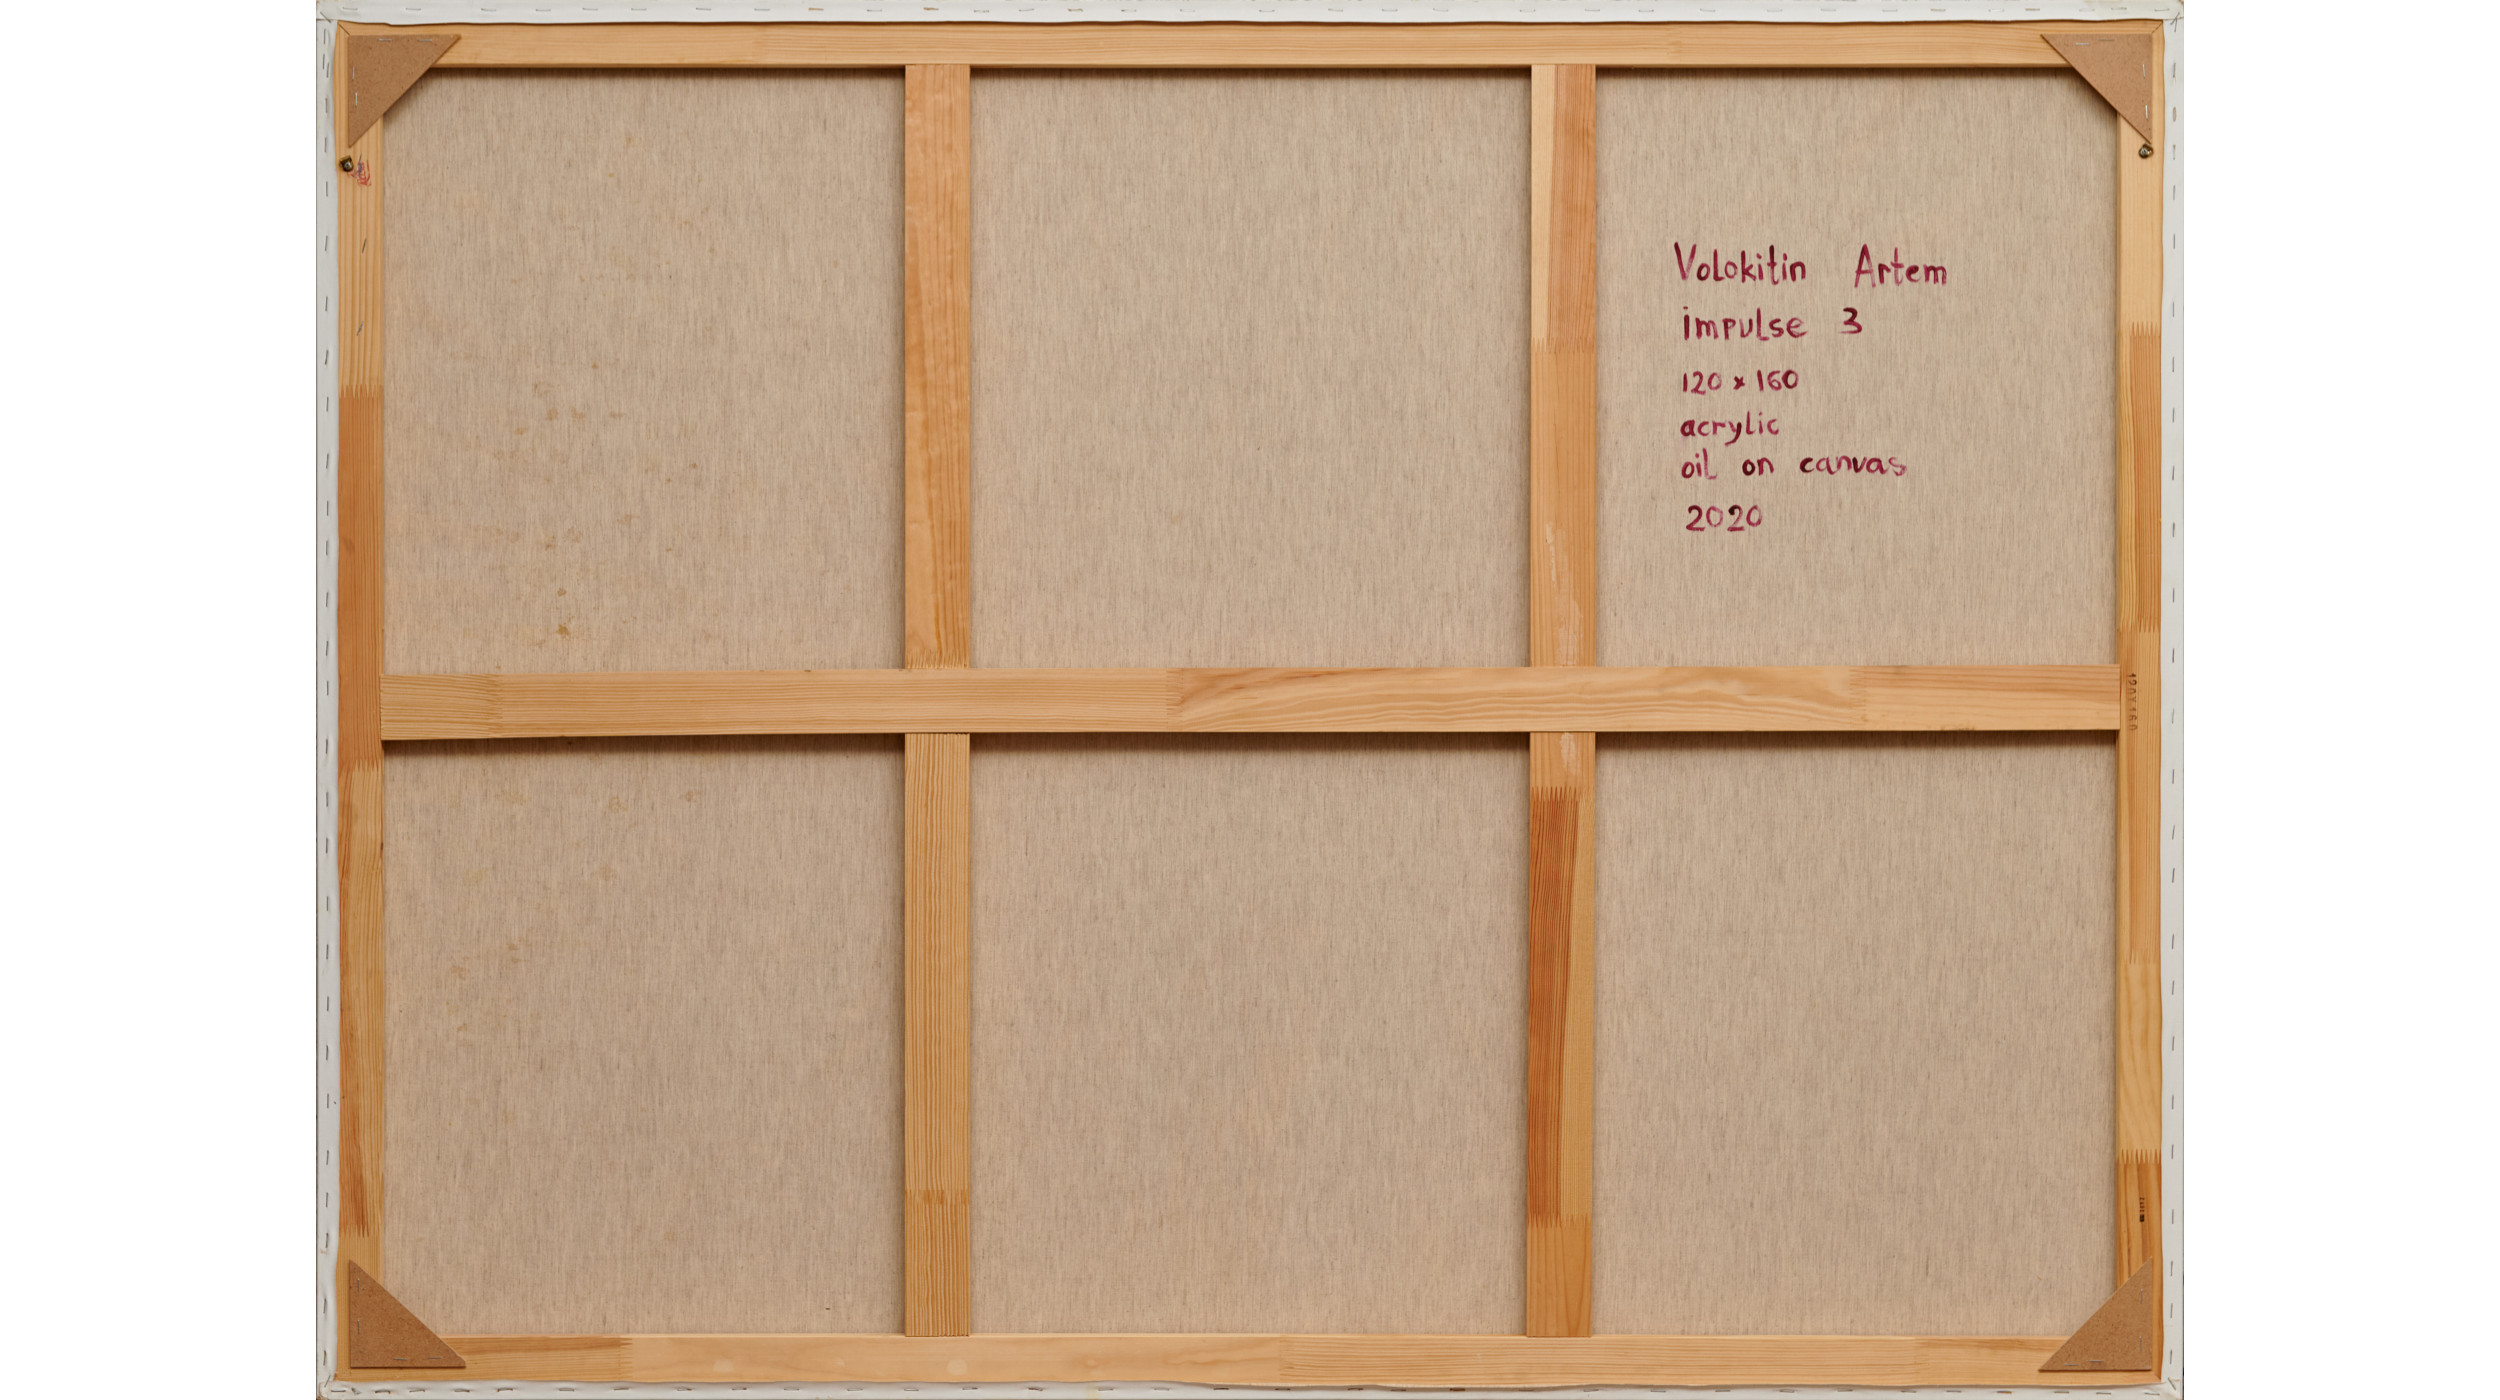 Volokitin Artem
impulse 3
120 x 160
acrylic
oil on canvas
2020
120x160